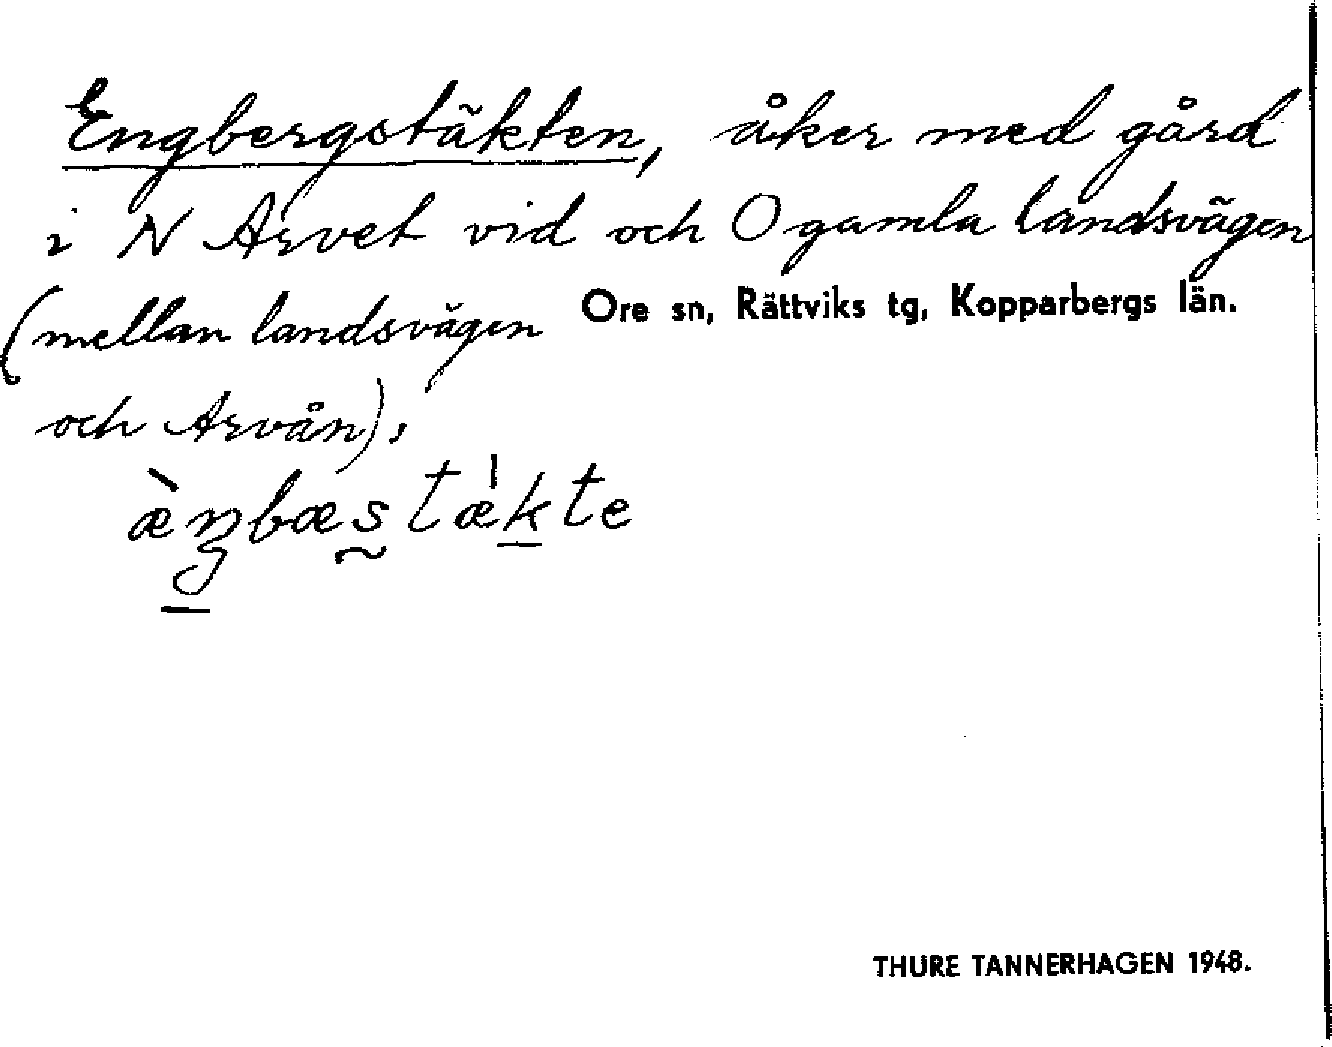 Engbergstäkten, åker med gård
i N Arvet vid och O gamla landsvägen
(mellan landsvägen
Ore sn, Rättviks tg, Kopparbergs län.
och Arvån),
æ̀ŋbæstæ'kte
THURE TANNERHAGEN 1948.